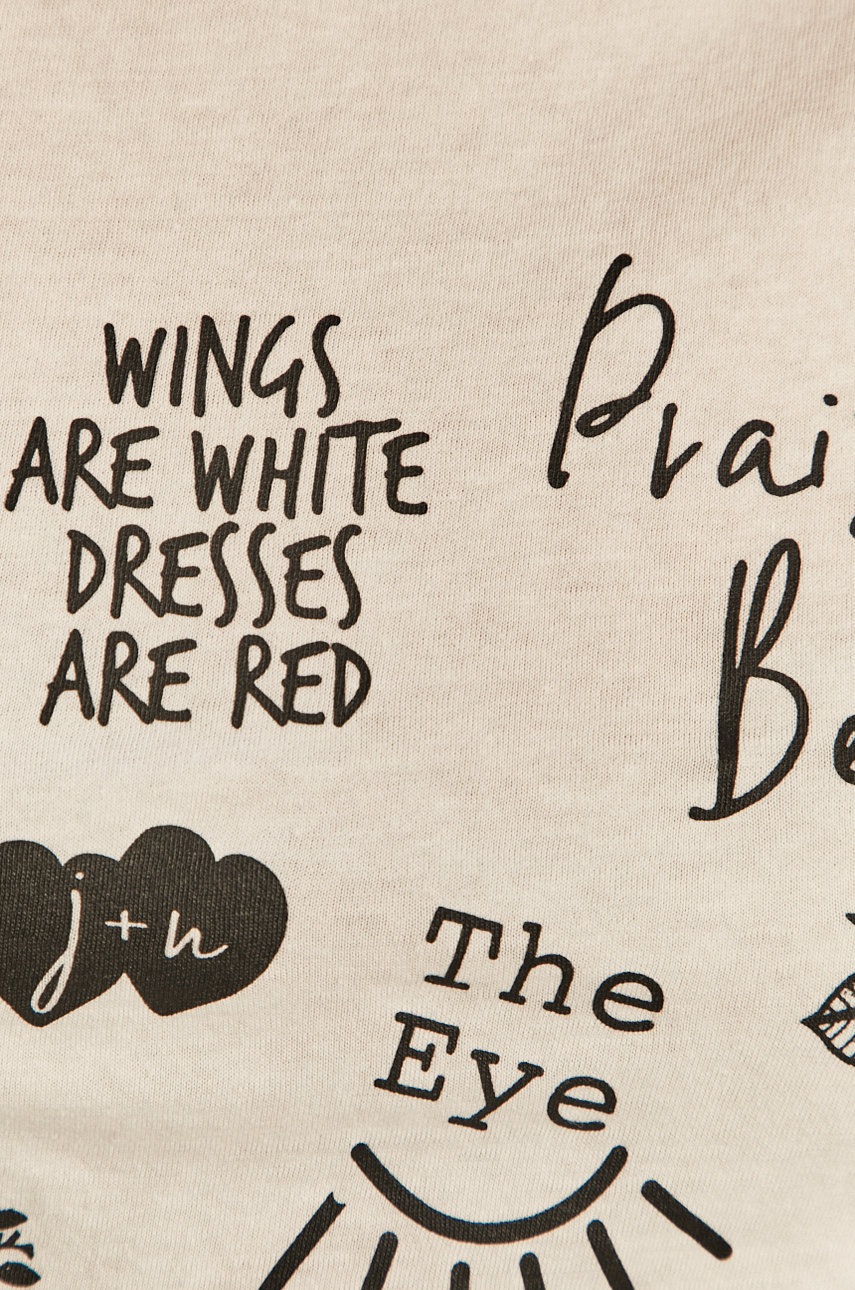 WINGS
ARE WHITE
DRESSES
ARE RED
j+n
The
Eye